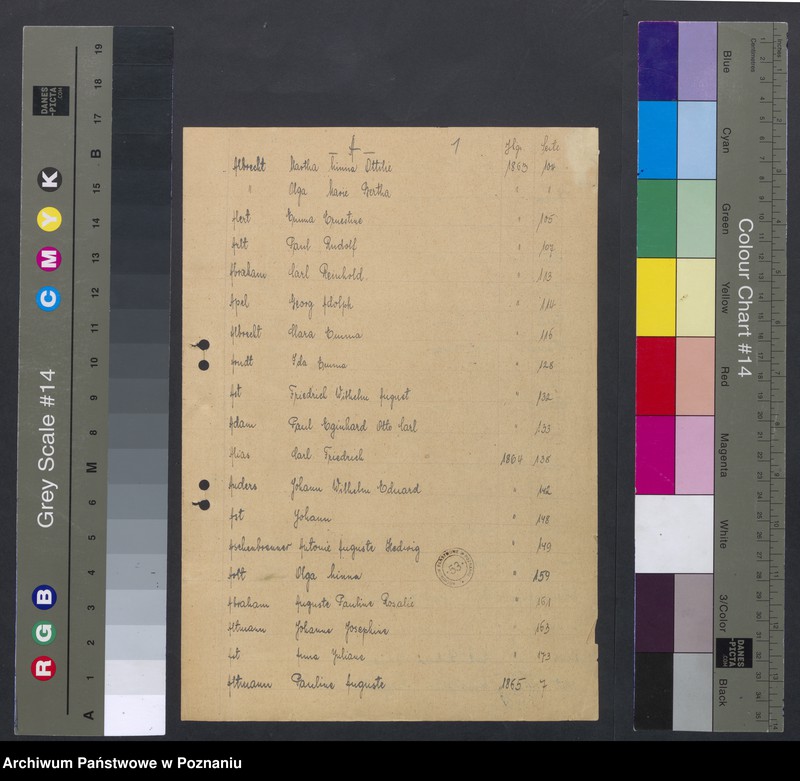 - A -
1
Jhg. Seite
Albrecht Martha Minna Ottilie 1863 104
" Olga Marie Bertha " "
Emma Ernestine " 105
Paul Rudolf " 107
Abraham Carl Reinhold. " 113
Apel Georg Adolph " 114
Albrecht Clara Emma " 116
Arndt Ida Emma " 128
Ast Friedrich Wilhelm August " 132
Adam Paul Eginhard Otto Carl " 133
Carl Friedrich 1864 138
Anders Johann Wilhelm Eduard " 142
Ast Johann " 148
Aschenbrenner Antonie Auguste Hedwig " 149
Olga Minna " 159
Abraham Auguste Pauline Rosalie " 161
Altmann Johanne Josephine " 163
Anna Juliane " 173
Altmann Pauline Auguste 1865 7
53
Grey Scale #14
R G B
C M Y K
A 1 2 3 4 5 6 M 8 9 10 11 12 13 14 15 B 17 18 19
DANES
-PICTA
.COM
Colour Chart #14
Blue
Cyan
Green
Yellow
Red
Magenta
White
3/Color
Black
Centimetres
Inches
DANES
-PICTA
.COM
Archiwum Państwowe w Poznaniu